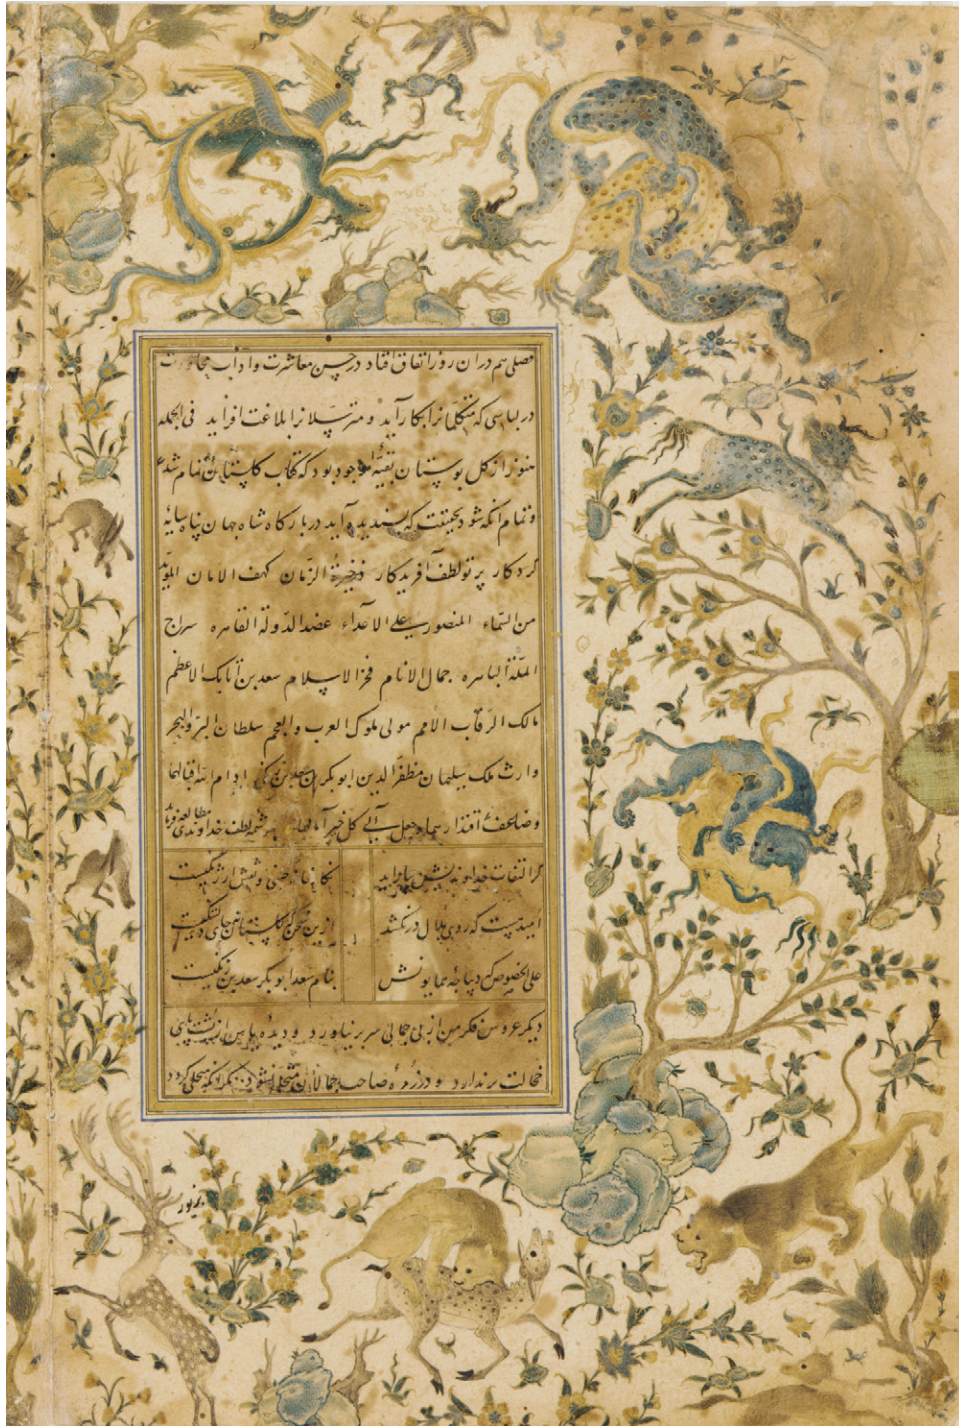 فصلی هم در آن روز اتفاق افتاد در حسن معاشرت و آداب محاورت
در لباسی که متکلمانرا بکار آید و مترسلانرا بلاغت افزاید فی الجمله
هنوز از گل بوستان بقیهٔ موجود بود که کتاب گلستان تمام شد
و تمام آنکه شود بحقیقت که پسندیده آید در بارگاه شاه جهان پناه سایهٔ
کردکار پرتو لطف آفریدکار ذخیرهٔ الزمان کهف الامان المؤید
من السماء المنصور علی الاعداء عضد الدولة القاهره سراج
الملة الباهره جمال الانام فخر الاسلام سعد بن اتابک الاعظم
مالک الرقاب الامم مولی ملوک العرب والعجم سلطان البر والبحر
وارث ملک سلیمان مظفر الدین ابوبکر بن سعد بن زنکی ادام الله اقبالهما
وضاعف اقتدارهما وجعل الی کل خیر مآلهما بکرشمه لطف خداوندی مطالعه فرماید
کر التفات خداوندیش بیاراید نکارخانهٔ چینی و نقش ارژنکیست
امید هست که روی ملال درنکشد ازین سخن که گلستان نه جای دلتنکیست
علی الخصوص که دیباچهٔ همایونش بنام سعد ابوبکر سعد بن زنکیست
دیکر عروس فکر من از بی جمالی سر بر نیاورد و دیدهٔ یاس از پشت پای
خجالت بر ندارد و در زمرهٔ صاحب جمالان متجلی نشود مکر آنکه متحلی کردد